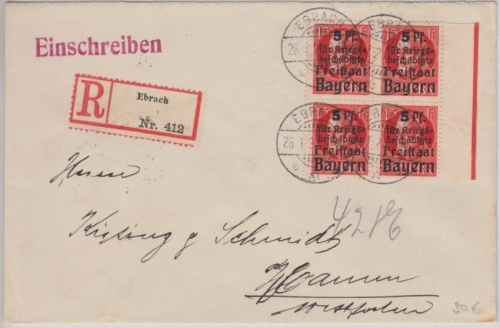 Einschreiben
R
Ebrach
Nr. 412
EBRACH
26
EBRACH
26
5 Pf.
für Kriegs-
beschädigte
Freistaat
Bayern
5 Pf.
für Kriegs-
beschädigte
Freistaat
Bayern
5 Pf.
für Kriegs-
beschädigte
Freistaat
Bayern
5 Pf.
für Kriegs-
beschädigte
Freistaat
Bayern
Schmidt
Hamm
Westfalen